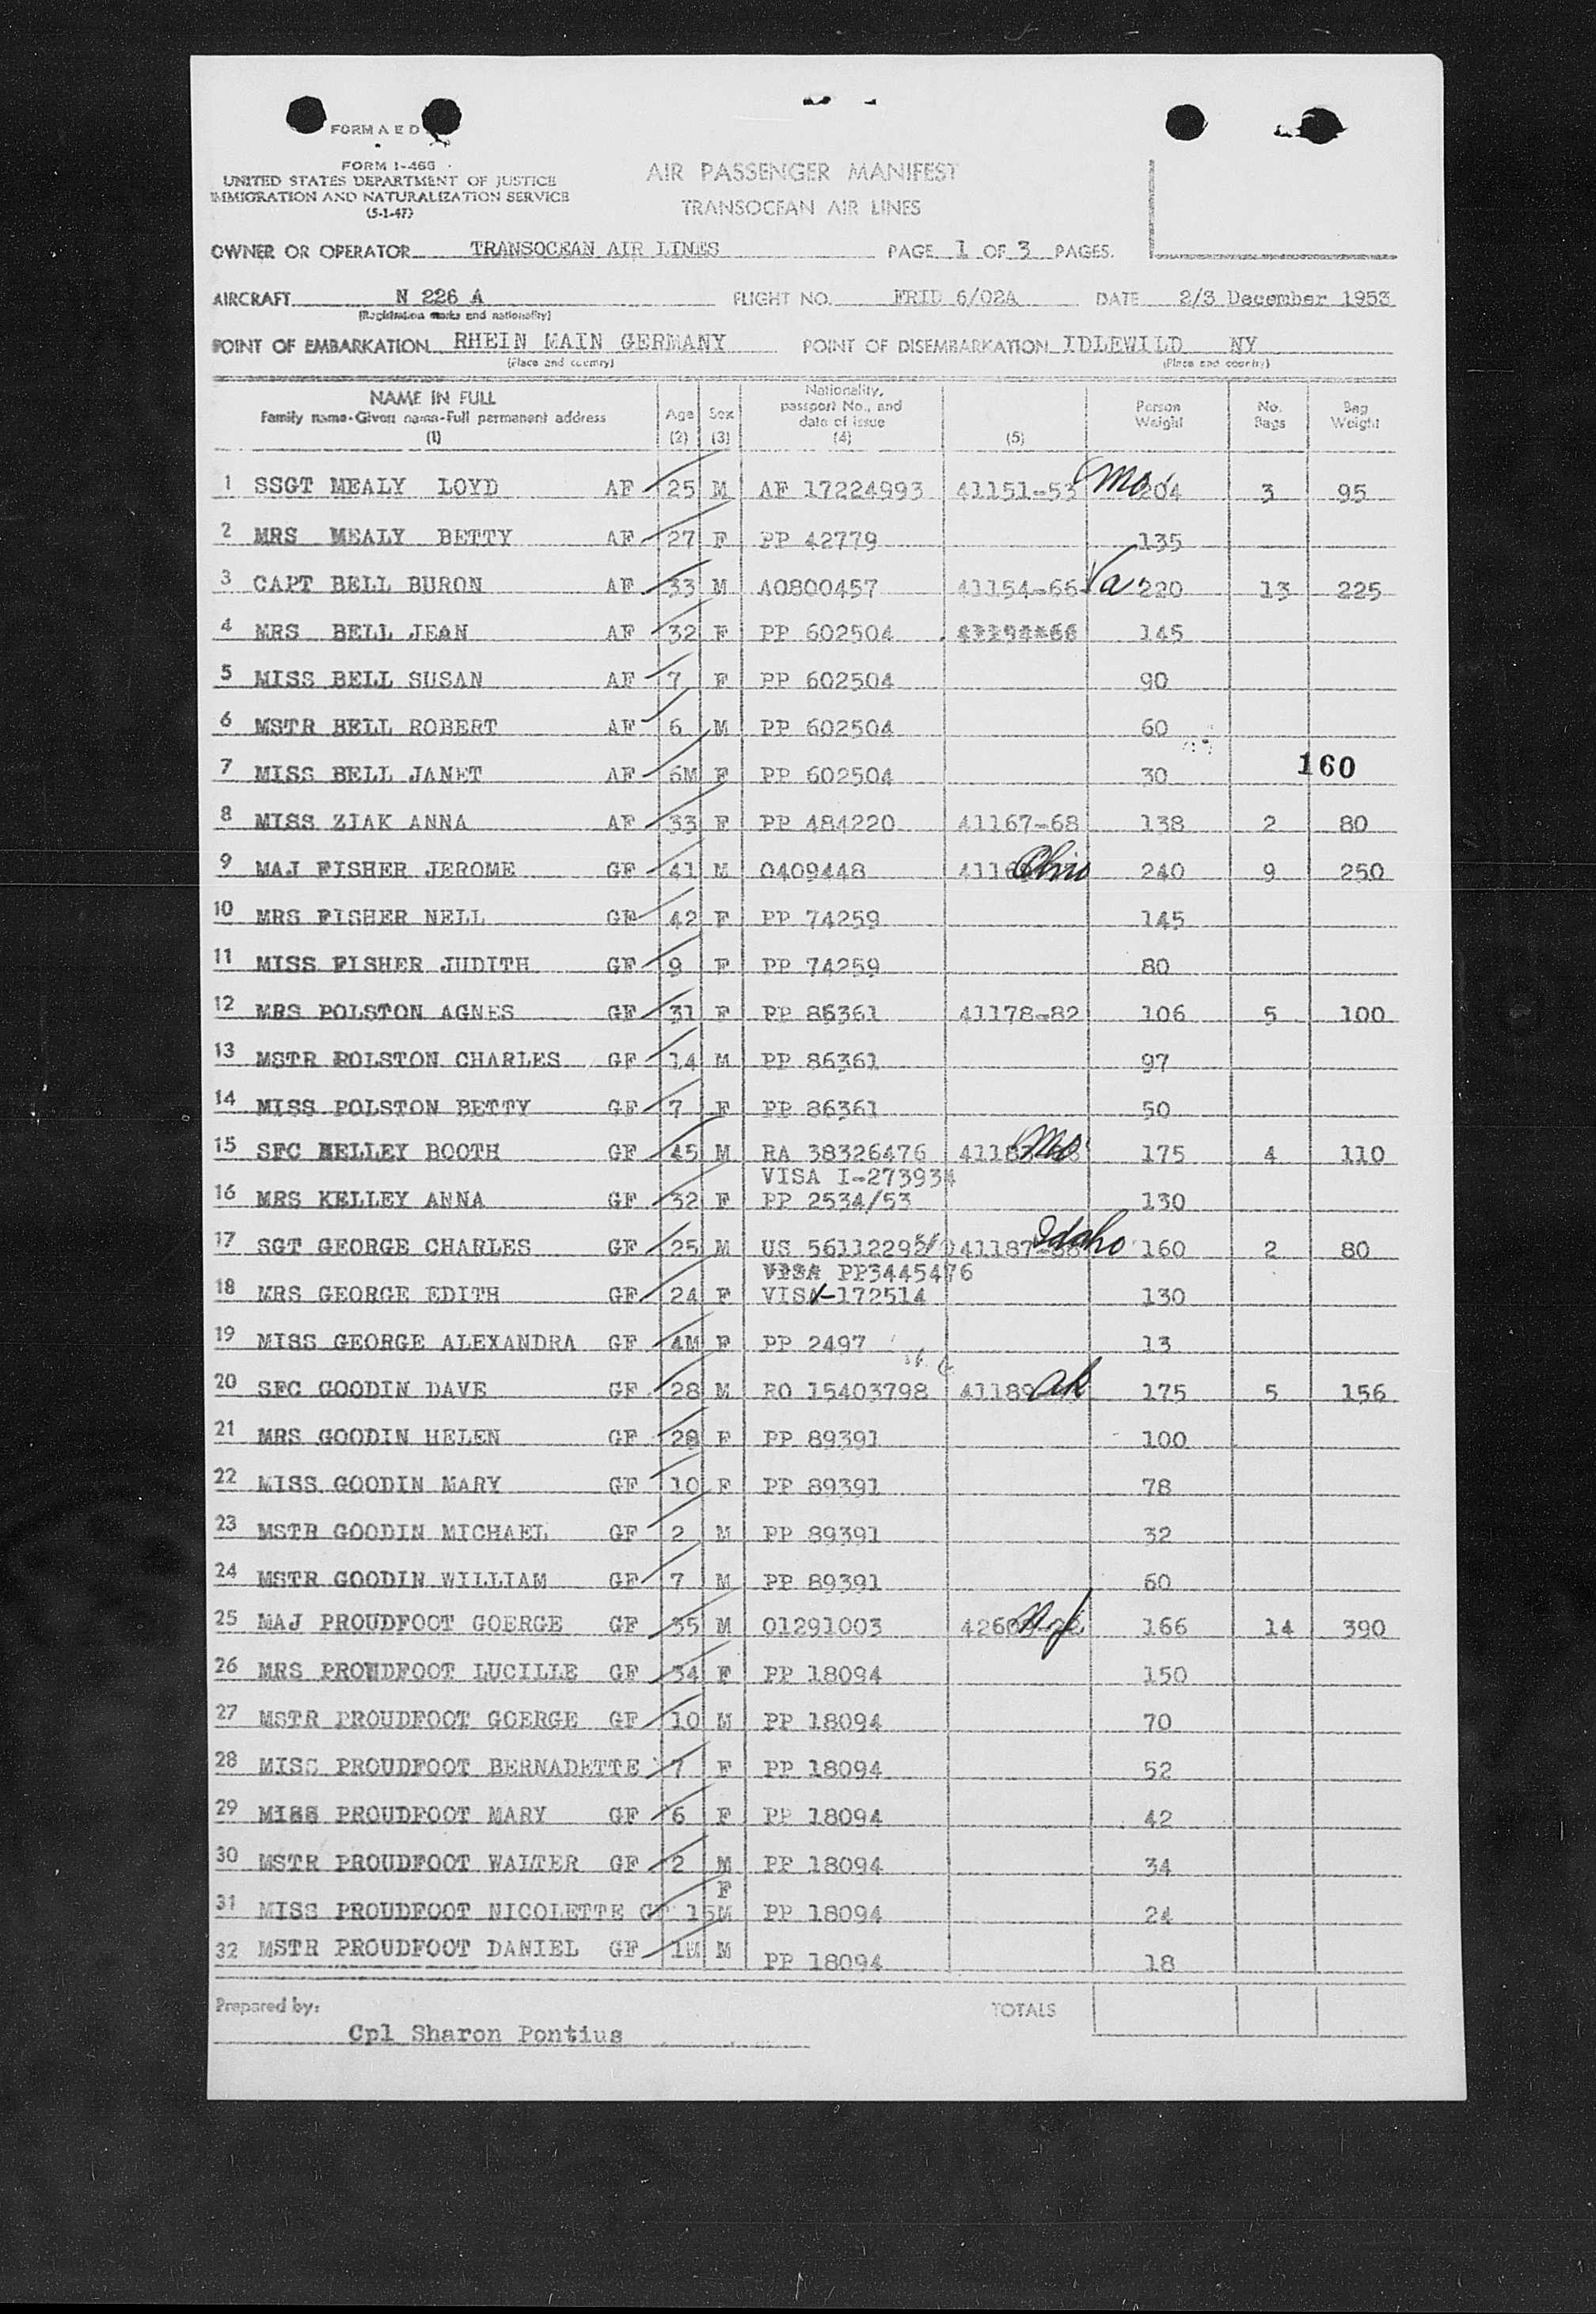 FORM A E D
FORM I-466
UNITED STATES DEPARTMENT OF JUSTICE
IMMIGRATION AND NATURALIZATION SERVICE
(5-1-47)
AIR PASSENGER MANIFEST
TRANSOCEAN AIR LINES
OWNER OR OPERATOR TRANSOCEAN AIR LINES PAGE 1 OF 3 PAGES.
AIRCRAFT N 226 A FLIGHT NO. FRID 6/02A DATE 2/3 December 1953
(Registration marks and nationality)
POINT OF EMBARKATION RHEIN MAIN GERMANY POINT OF DISEMBARKATION IDLEWILD NY
(Place and country) (Place and country)
NAME IN FULL
Family name-Given name-Full permanent address
(1)
Age
(2)
Sex
(3)
Nationality,
passport No., and
date of issue
(4)
(5)
Person
Weight
No.
Bags
Bag
Weight
1 SSGT MEALY LOYD AF 25 M AF 17224993 41151-53 Mo 204 3 95
2 MRS MEALY BETTY AF 27 F PP 42779 135
3 CAPT BELL BURON AF 33 M AO800457 41154-66 Va 220 13 225
4 MRS BELL JEAN AF 32 F PP 602504 145
5 MISS BELL SUSAN AF 7 F PP 602504 90
6 MSTR BELL ROBERT AF 6 M PP 602504 60
7 MISS BELL JANET AF 6M F PP 602504 30
160
8 MISS ZIAK ANNA AF 33 F PP 484220 41167-68 138 2 80
9 MAJ FISHER JEROME GF 41 M 0409448 Ohio 240 9 250
10 MRS FISHER NELL GF 42 F PP 74259 145
11 MISS FISHER JUDITH GF 9 F PP 74259 80
12 MRS POLSTON AGNES GF 31 F PP 86361 41178-82 106 5 100
13 MSTR POLSTON CHARLES GF 14 M PP 86361 97
14 MISS POLSTON BETTY GF 7 F PP 86361 50
15 SFC KELLEY BOOTH GF 45 M RA 38326476 Mo 175 4 110
VISA I-273934
16 MRS KELLEY ANNA GF 32 F PP 2534/53 130
17 SGT GEORGE CHARLES GF 25 M US 56112292 41187-88 Idaho 160 2 80
VISA PP3445476
18 MRS GEORGE EDITH GF 24 F VISA-172514 130
19 MISS GEORGE ALEXANDRA GF 4M F PP 2497 13
20 SFC GOODIN DAVE GF 28 M RO 15403798 41189 175 5 156
21 MRS GOODIN HELEN GF 28 F PP 89391 100
22 MISS GOODIN MARY GF 10 F PP 89391 78
23 MSTR GOODIN MICHAEL GF 2 M PP 89391 32
24 MSTR GOODIN WILLIAM GF 7 M PP 89391 60
25 MAJ PROUDFOOT GOERGE GF 35 M 01291003 NJ 166 14 390
26 MRS PROUDFOOT LUCILLE GF 34 F PP 18094 150
27 MSTR PROUDFOOT GOERGE GF 10 M PP 18094 70
28 MISS PROUDFOOT BERNADETTE 7 F PP 18094 52
29 MISS PROUDFOOT MARY GF 6 F PP 18094 42
30 MSTR PROUDFOOT WALTER GF 2 M PP 18094 34
F
31 MISS PROUDFOOT NICOLETTE GF 15M PP 18094 24
32 MSTR PROUDFOOT DANIEL GF 1M M PP 18094 18
Prepared by: TOTALS
Cpl Sharon Pontius